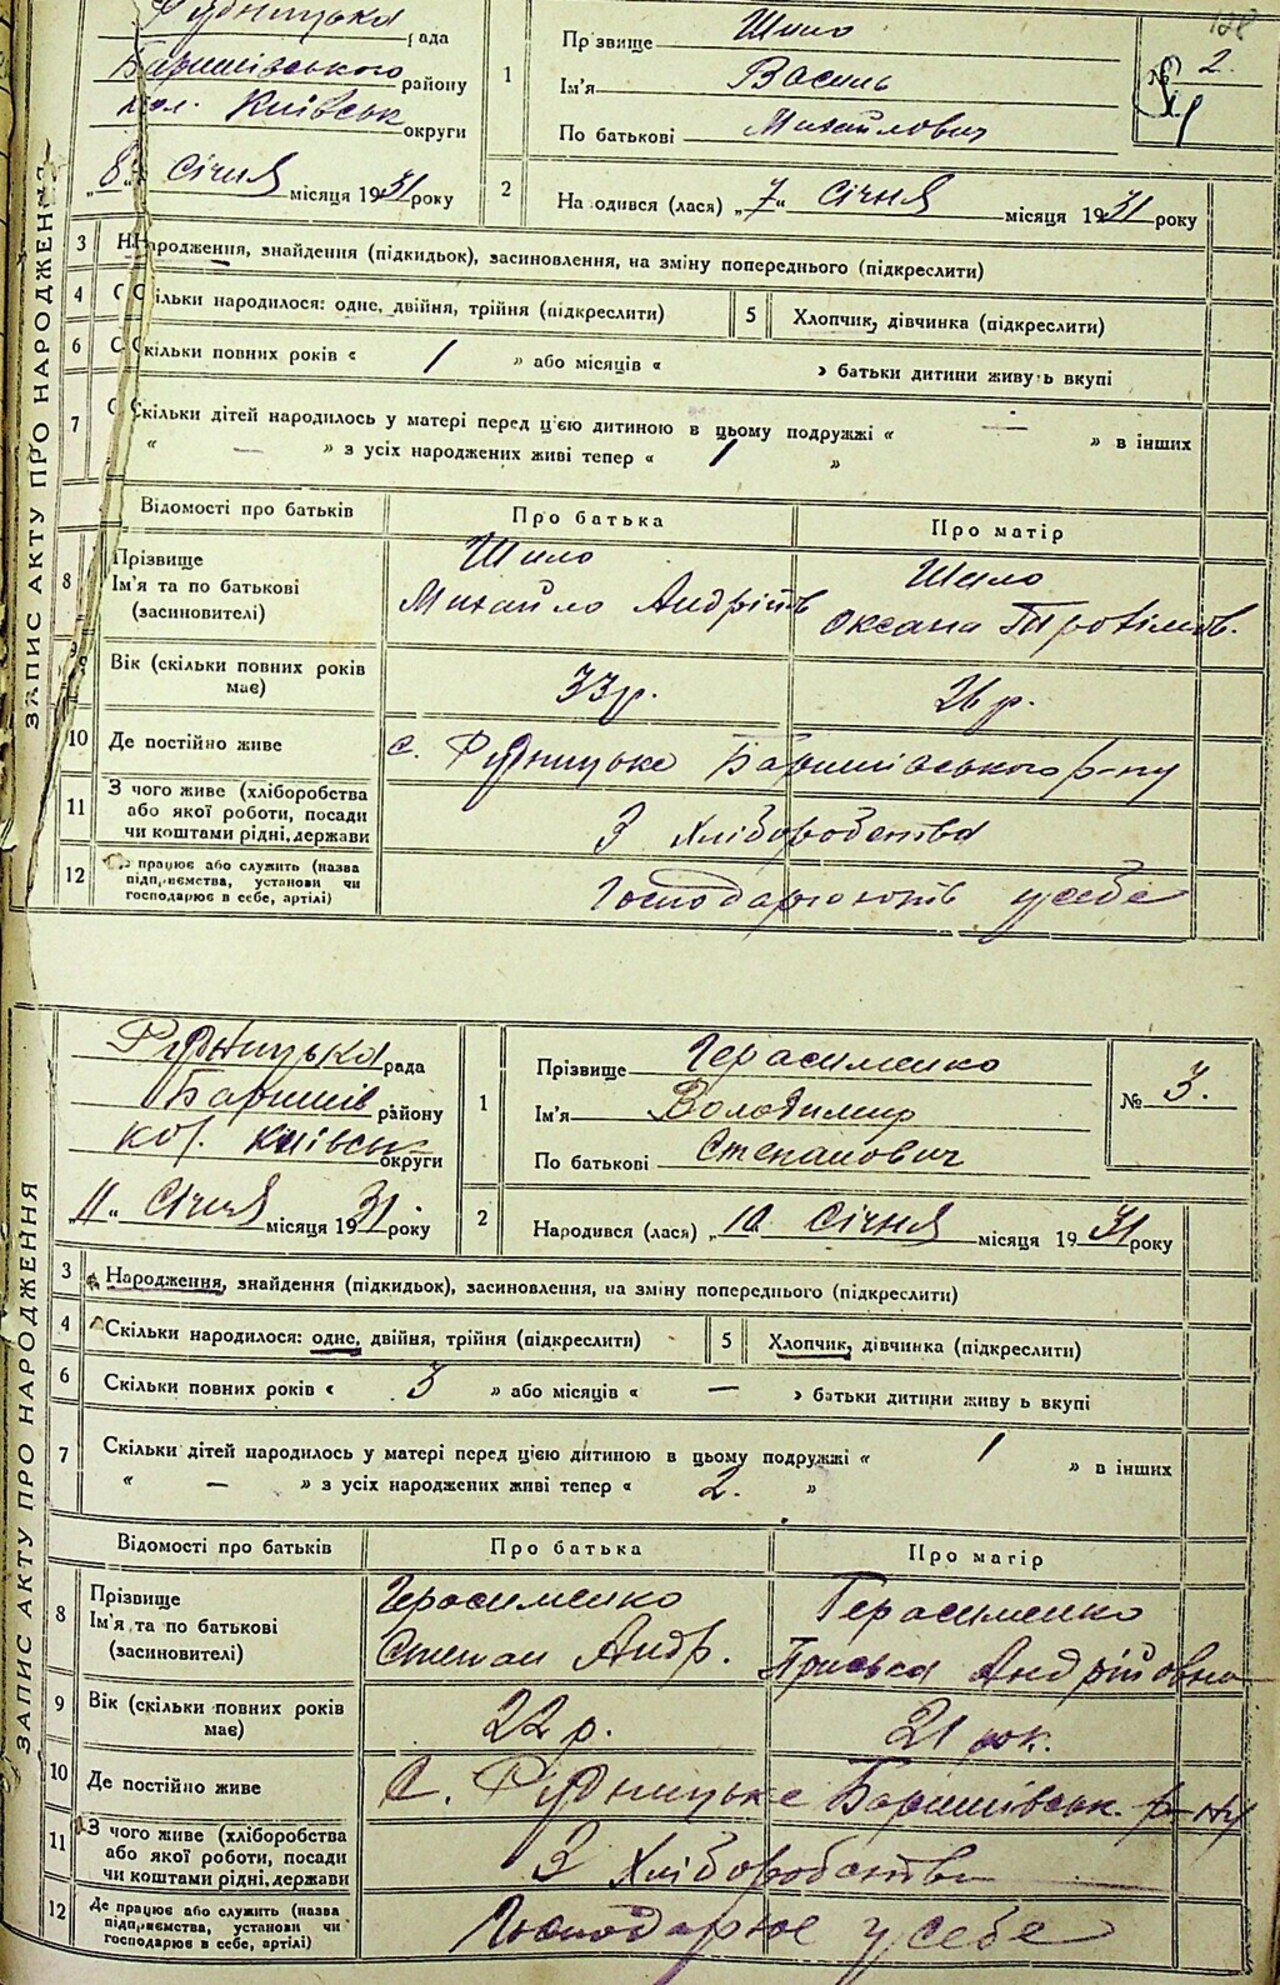 Рудницька рада
Баришівського району
кол. Київськ округи
„8“ Січня місяця 1931 року
1
Прізвище Шило
Ім'я Василь
По батькові Михайлович
№ 2.
2
На одився (лася) „7“ Січня місяця 1931 року
ЗАПИС АКТУ ПРО НАРОДЖЕННЯ
3 Народження, знайдення (підкидьок), засиновлення, на зміну попереднього (підкреслити)
4 Скільки народилося: одне, двійня, трійня (підкреслити)
5 Хлопчик, дівчинка (підкреслити)
6 Скільки повних років « 1 » або місяців « » батьки дитини живу ь вкупі
7 Скільки дітей народилось у матері перед цією дитиною в цьому подружжі « — » в інших
« — » з усіх народжених живі тепер « 1 »
Відомості про батьків Про батька Про матір
8 Прізвище
Ім'я та по батькові
(засиновителі)
Шило
Михайло Андріїв
Шило
Оксана Трохімов.
9 Вік (скільки повних років
має)
33 р. 26 р.
10 Де постійно живе с. Рудницьке Баришівського р-ну
11 З чого живе (хліборобства
або якої роботи, посади
чи коштами рідні, держави
З Хліборобства
12 Де працює або служить (назва
підприємства, установи чи
господарює в себе, артілі)
Господарюють у себе
Рудницька рада
Баришів району
кол. Київськ округи
„11“ Січня місяця 1931 року
1
Прізвище Герасименко
Ім'я Володимир
По батькові Степанович
№ 3.
2
Народився (лася) „10“ Січня місяця 1931 року
ЗАПИС АКТУ ПРО НАРОДЖЕННЯ
3 Народження, знайдення (підкидьок), засиновлення, на зміну попереднього (підкреслити)
4 Скільки народилося: одне, двійня, трійня (підкреслити)
5 Хлопчик, дівчинка (підкреслити)
6 Скільки повних років « 3 » або місяців « — » батьки дитини живу ь вкупі
7 Скільки дітей народилось у матері перед цією дитиною в цьому подружжі « 1 » в інших
« — » з усіх народжених живі тепер « 2. »
Відомості про батьків Про батька Про матір
8 Прізвище
Ім'я та по батькові
(засиновителі)
Герасименко
Степан Андр.
Герасименко
Приська Андрійовна
9 Вік (скільки повних років
має)
22 р. 21 рок.
10 Де постійно живе С. Рудницьке Баришівськ. р-ну
11 З чого живе (хліборобства
або якої роботи, посади
чи коштами рідні, держави
З Хліборобства
12 Де працює або служить (назва
підприємства, установи чи
господарює в себе, артілі)
Господарює у себе